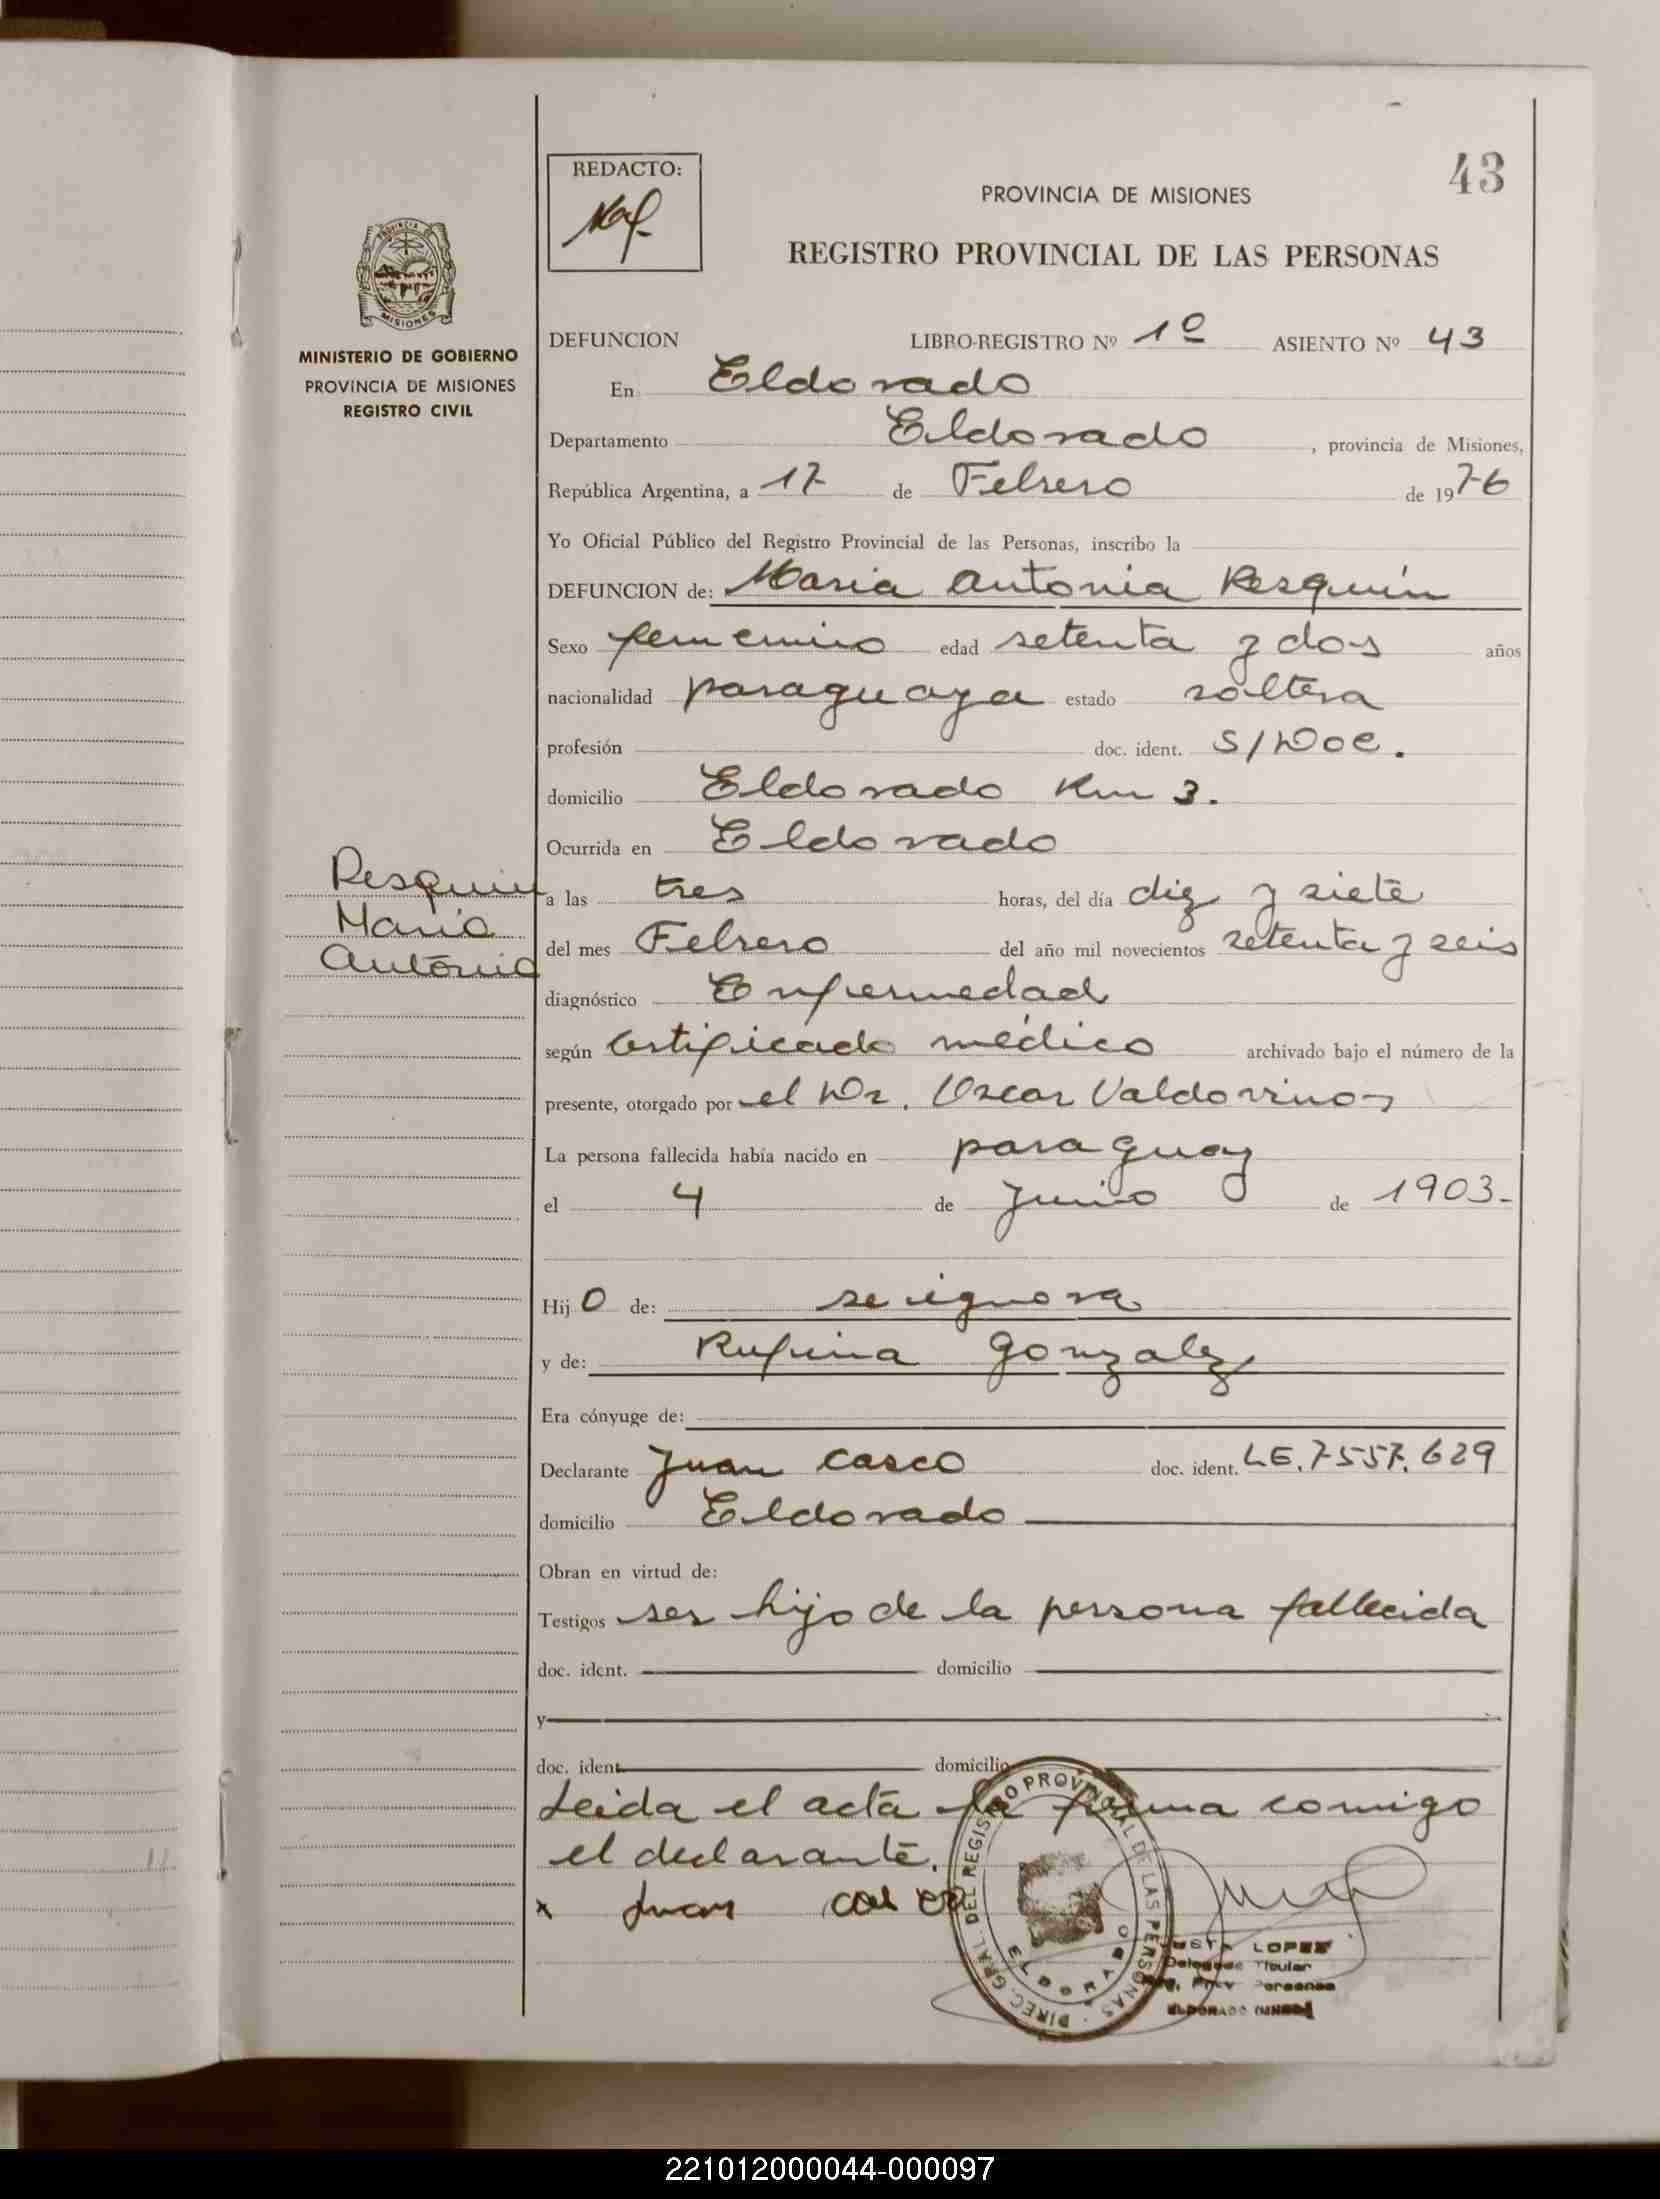 43
REDACTO:
PROVINCIA DE MISIONES
REGISTRO PROVINCIAL DE LAS PERSONAS
MISIONES
MINISTERIO DE GOBIERNO
PROVINCIA DE MISIONES
REGISTRO CIVIL
DEFUNCION LIBRO-REGISTRO Nº 1º ASIENTO Nº 43
En Eldorado
Departamento Eldorado , provincia de Misiones,
República Argentina, a 17 de Febrero de 1976
Yo Oficial Público del Registro Provincial de las Personas, inscribo la
DEFUNCION de: Maria Antonia Resquín
Sexo femenino edad setenta y dos años
nacionalidad paraguaya estado soltera
profesión doc. ident. S/Doc.
domicilio Eldorado Km 3.
Ocurrida en Eldorado
Resquin
Maria
Antonia
a las tres horas, del día diez y siete
del mes Febrero del año mil novecientos setenta y seis
diagnóstico Enfermedad
según Certificado médico archivado bajo el número de la
presente, otorgado por el Dr. Oscar Valdovinos
La persona fallecida había nacido en paraguay
el 4 de Junio de 1903.-
Hij O de: se ignora
y de: Rufina Gonzalez
Era cónyuge de:
Declarante Juan Casco doc. ident. LE. 7557.629
domicilio Eldorado
Obran en virtud de:
Testigos ser hijo de la persona fallecida
doc. ident. domicilio
y
doc. ident. domicilio
Leida el acta la firma comigo
el declarante.
x Juan
DIREC. GRAL DEL REGISTRO PROVINCIAL DE LAS PERSONAS
ELDORADO
LOPEZ
Delegado Titular
Personas
ELDORADO
221012000044-000097